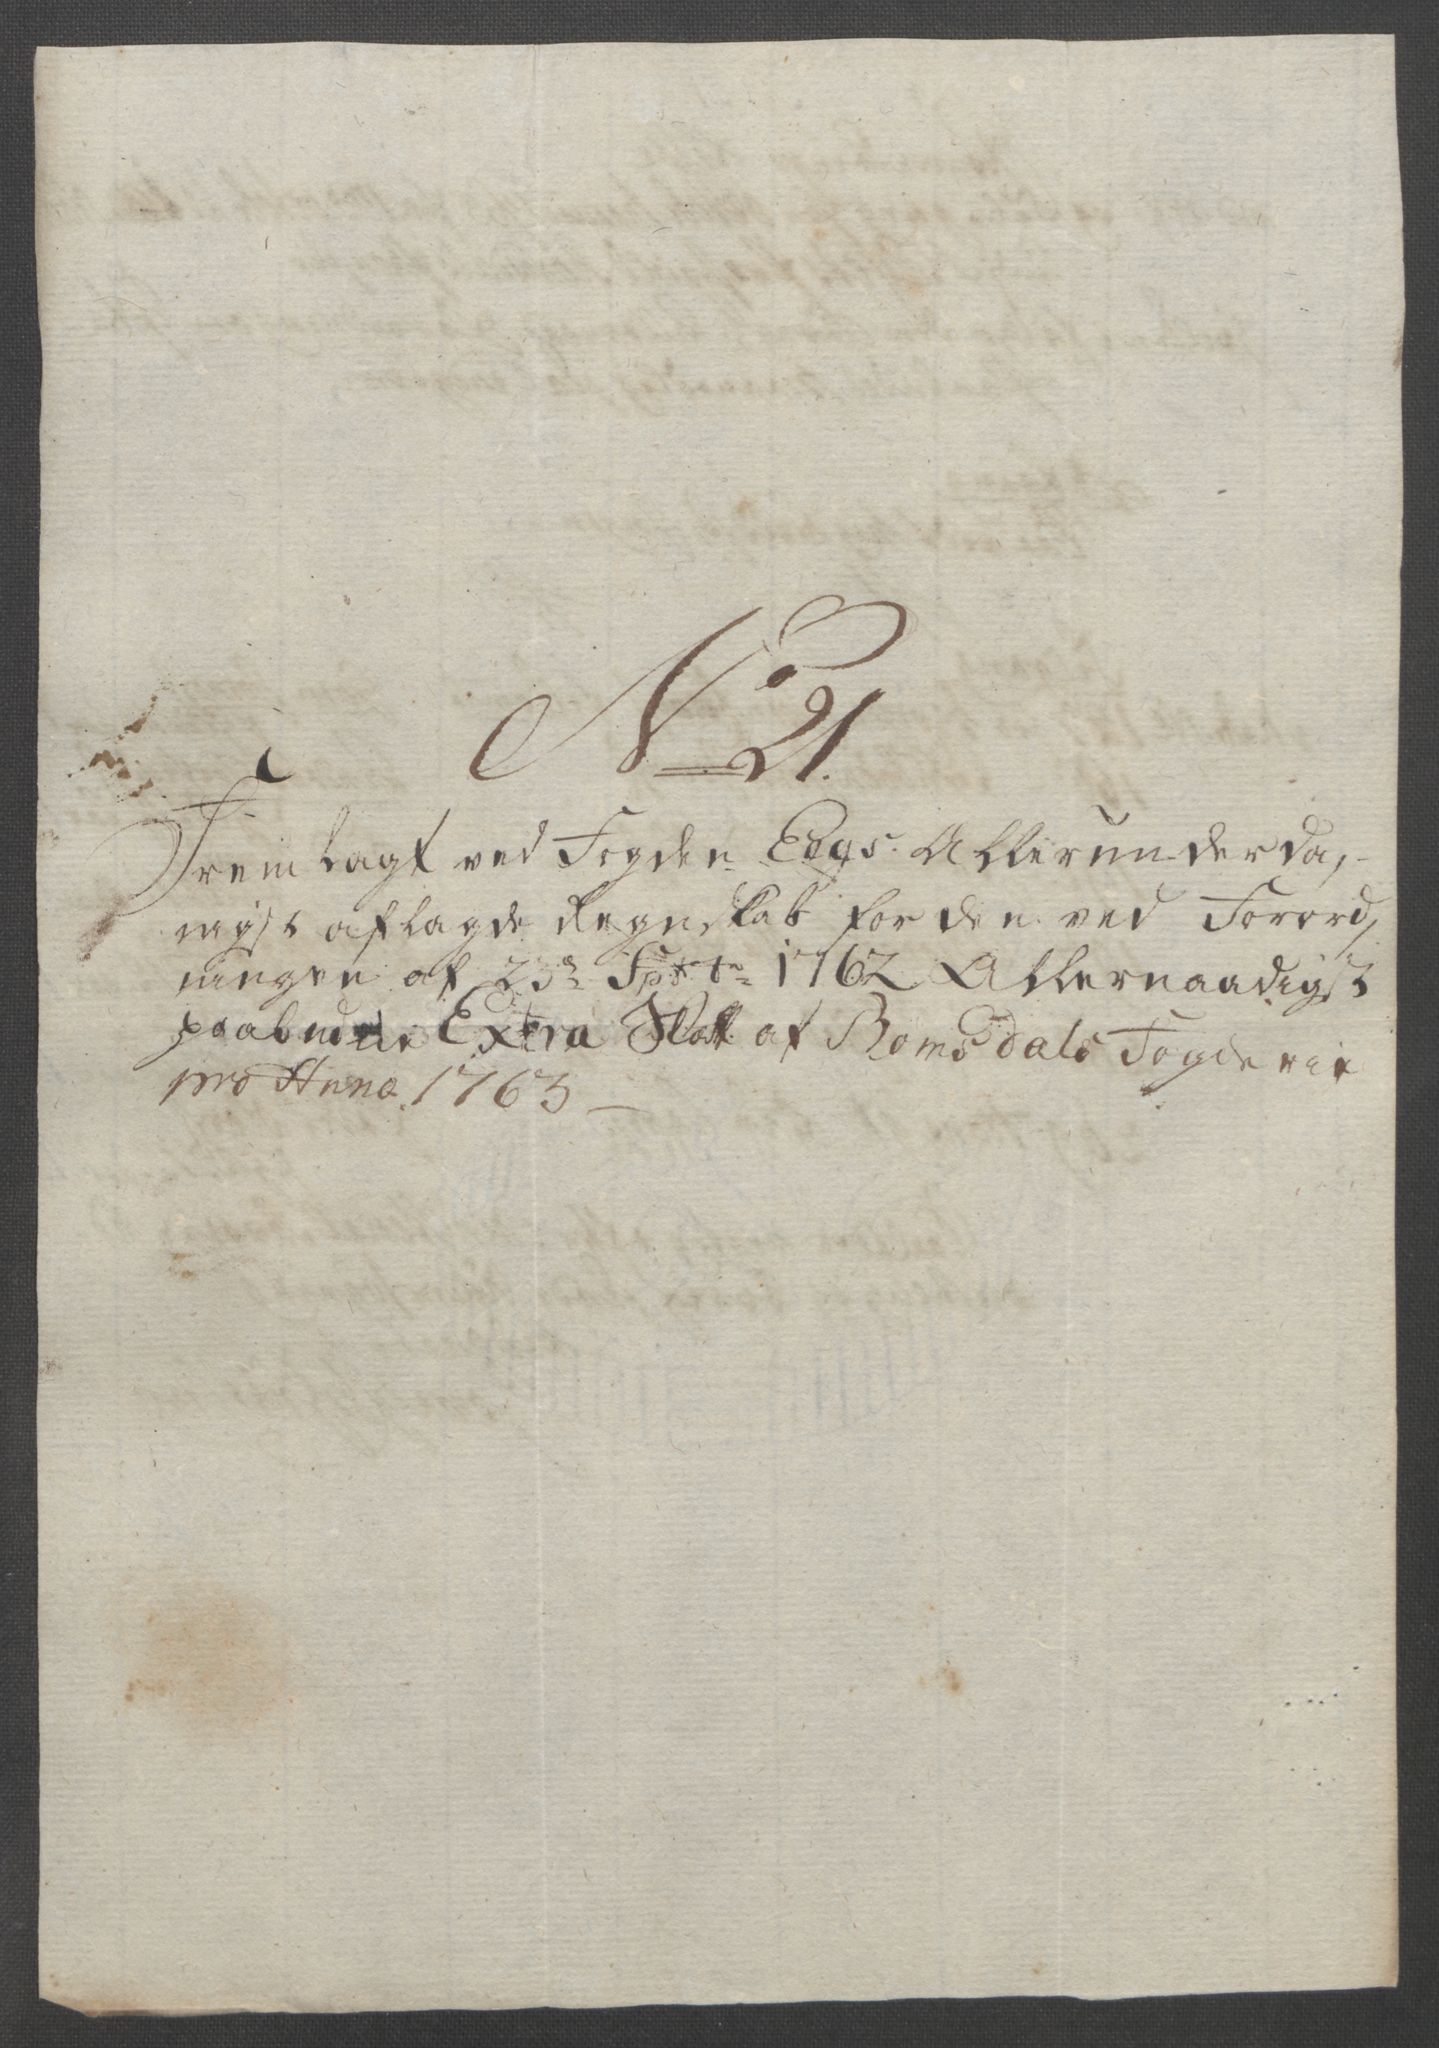 No 21.
Fremlagt ved Fogden Eegs Allerunderda,,
nigst aflagde Regnskab for den ved Forord,,
ningen af 23de Septbr 1762 Allernaadigst
paabudne Extra Skatt af Romsdals Fogderie
pro Anno 1763